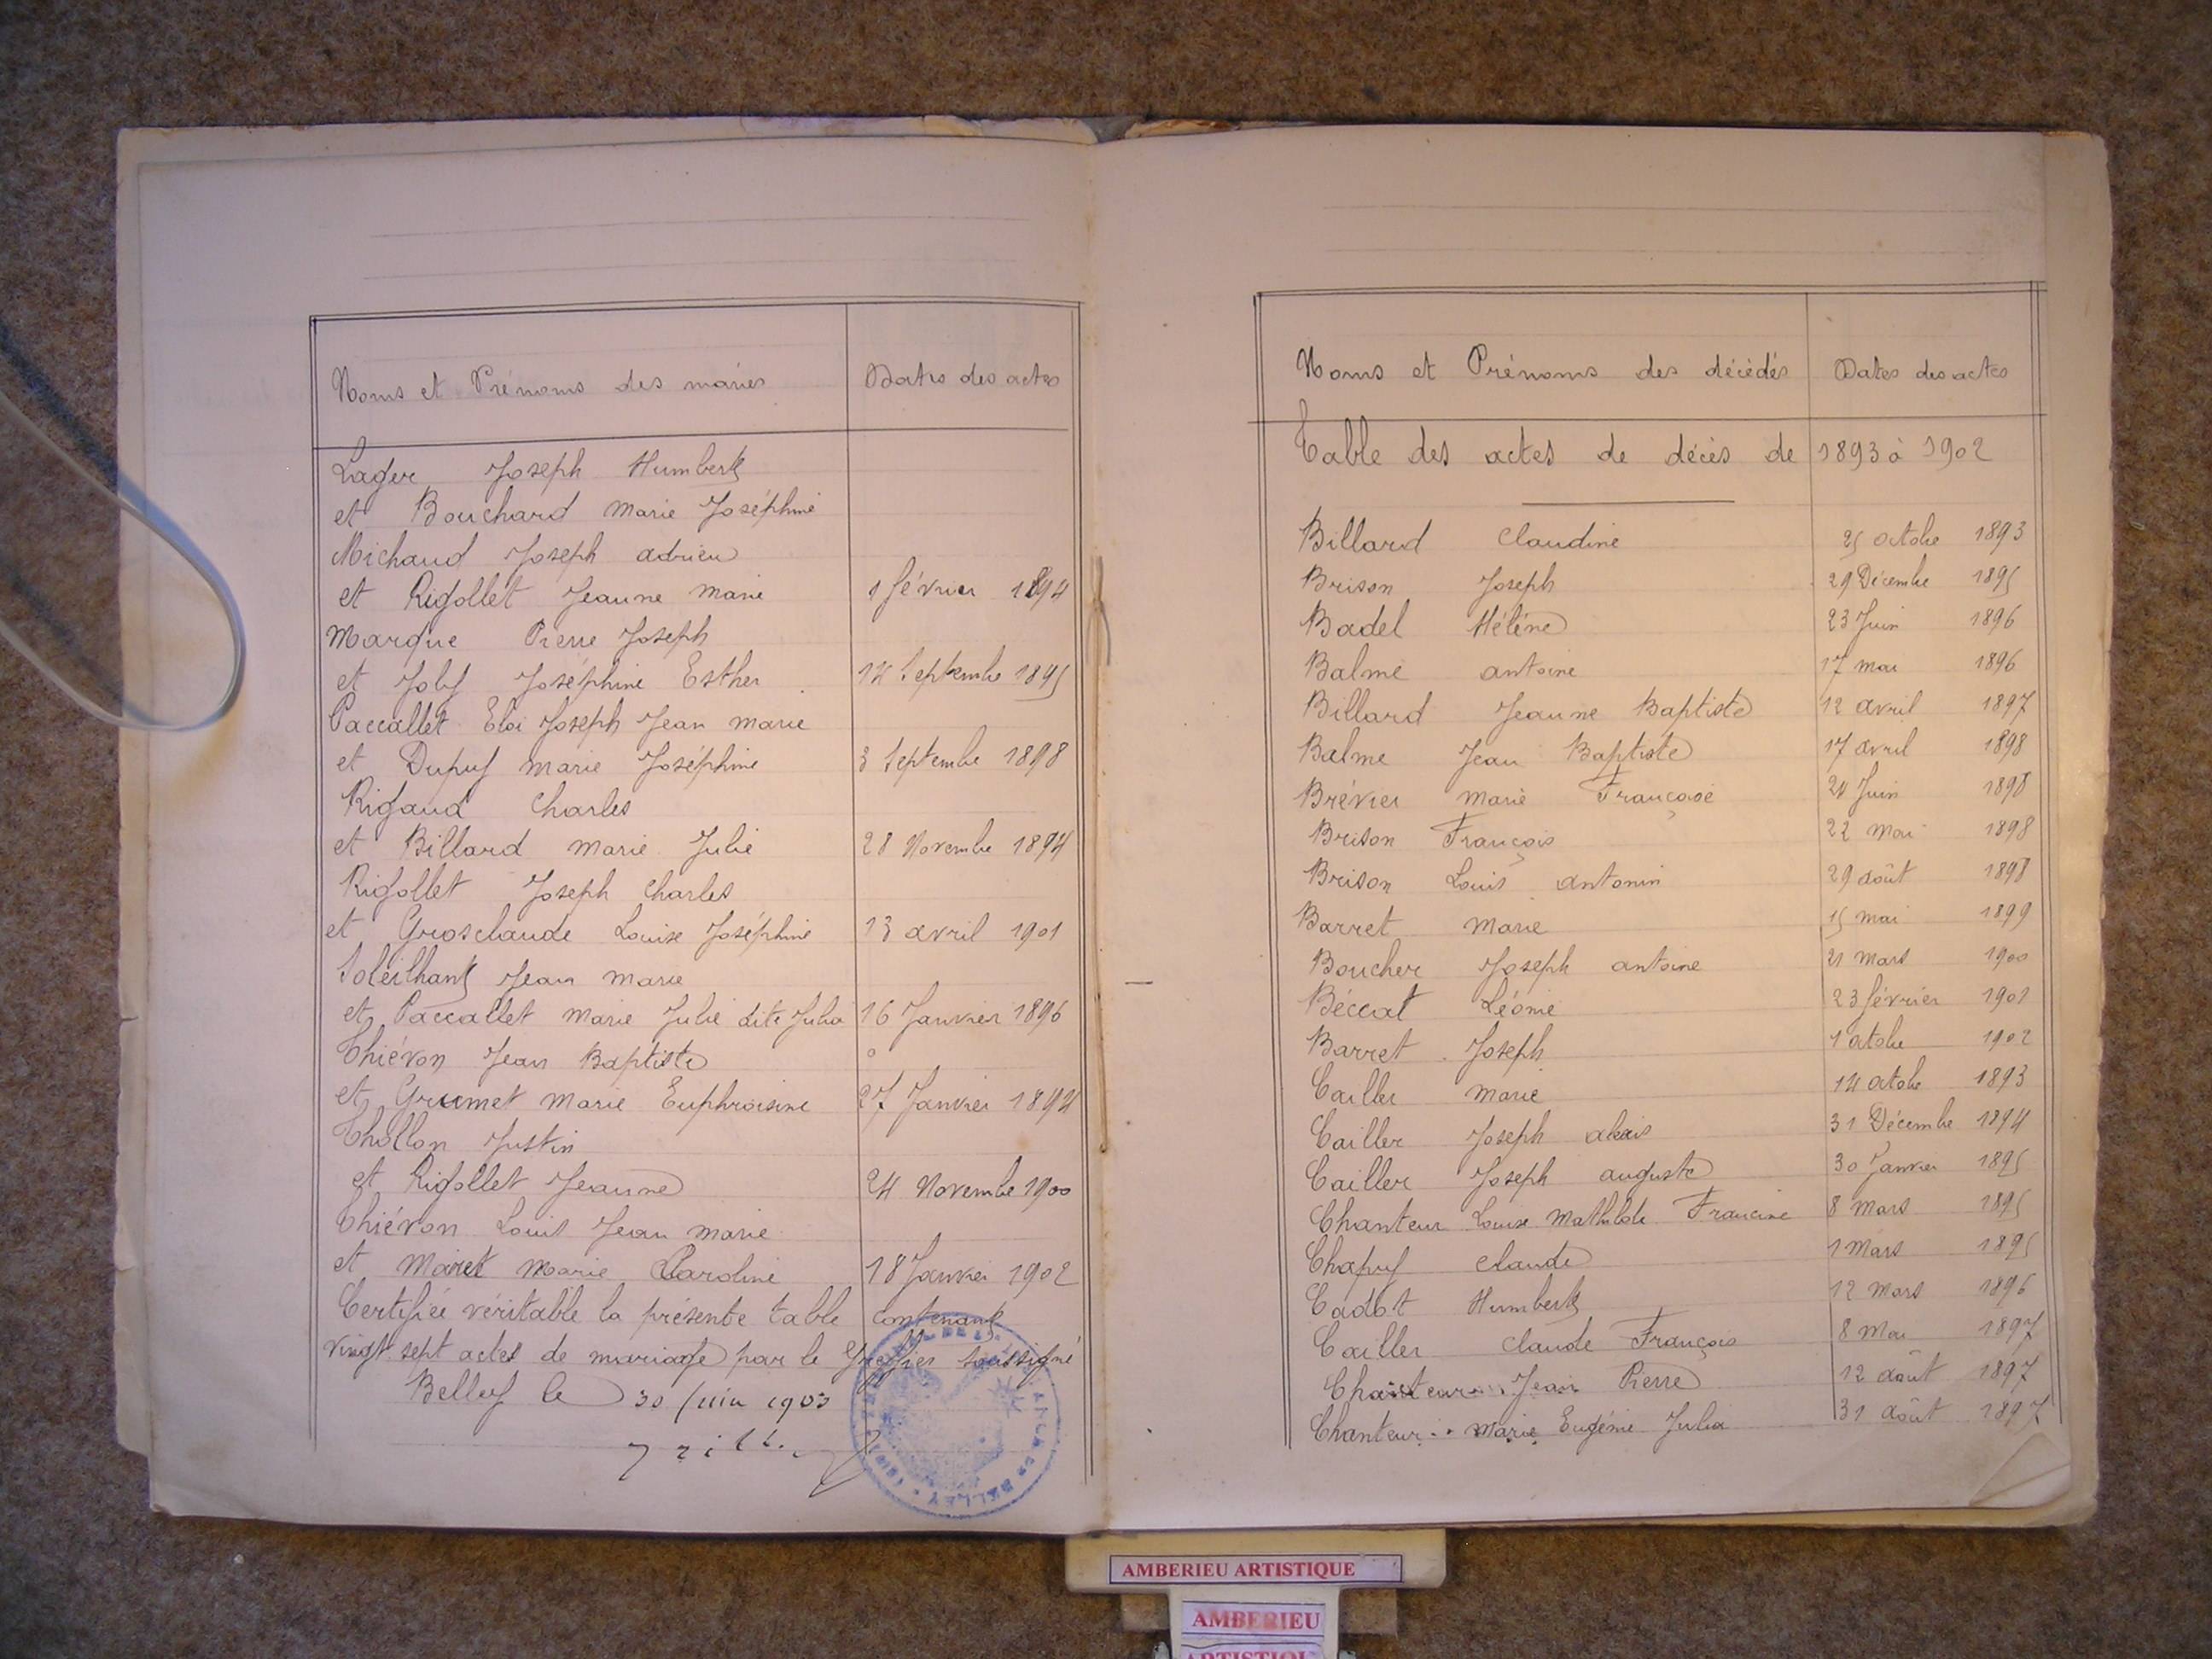 Noms et Prénoms des mariés Dates des actes
Lager Joseph Humbert
et Bouchard Marie Joséphine
Michaud Joseph adrien
et Rigollet Jeanne Marie 1 février 1894
Marque Pierre Joseph
et Joly Joséphine Esther 14 Septembre 1895
Paccallet Eloi Joseph Jean Marie
et Dupuy Marie Joséphine 3 Septembre 1898
Rigaud Charles
et Billard Marie Julie 28 Novembre 1894
Rigollet Joseph Charles
et Grosclaude Louise Joséphine 13 avril 1901
Soleilhant Jean Marie
et Paccallet Marie Julie dite Julia 16 Janvier 1896
Thiévon Jean Baptiste
et Grumet Marie Euphroisine 27 Janvier 1894
Thollon Justin
et Rigollet Jeanne 24 Novembre 1900
Thiévon Louis Jean Marie
et Maret Marie Caroline 18 Janvier 1902
Certifiée véritable la présente table contenant
vingt sept actes de mariage par le Greffier soussigné
Belley le 30 Juin 1903
Noms et Prénoms des décédés Dates des actes
Table des actes de décès de 1893 à 1902
Billard Claudine 25 octobre 1893
Brison Joseph 29 Décembre 1895
Badel Hélène 23 Juin 1896
Balme antoine 17 mai 1896
Billard Jeanne Baptiste 12 avril 1897
Balme Jean Baptiste 17 avril 1898
Brévier Marie Françoise 24 Juin 1898
Brison François 22 Mai 1898
Brison Louis antonin 29 août 1898
Barret Marie 15 mai 1899
Boucher Joseph antoine 21 Mars 1900
Béccat Léonie 23 février 1901
Barret Joseph 1 octobre 1902
Cailler Marie 14 octobre 1893
Cailler Joseph alexis 31 Décembre 1894
Cailler Joseph auguste 30 Janvier 1895
Chanteur Louise Mathilde Francine 8 Mars 1895
Chapuy Claude 1 Mars 1895
Cadot Humbert 12 Mars 1896
Cailler Claude François 8 Mai 1897
Chanteur Jean Pierre 12 août 1897
Chanteur Marie Eugénie Julia 31 août 1897
AMBERIEU ARTISTIQUE
AMBERIEU